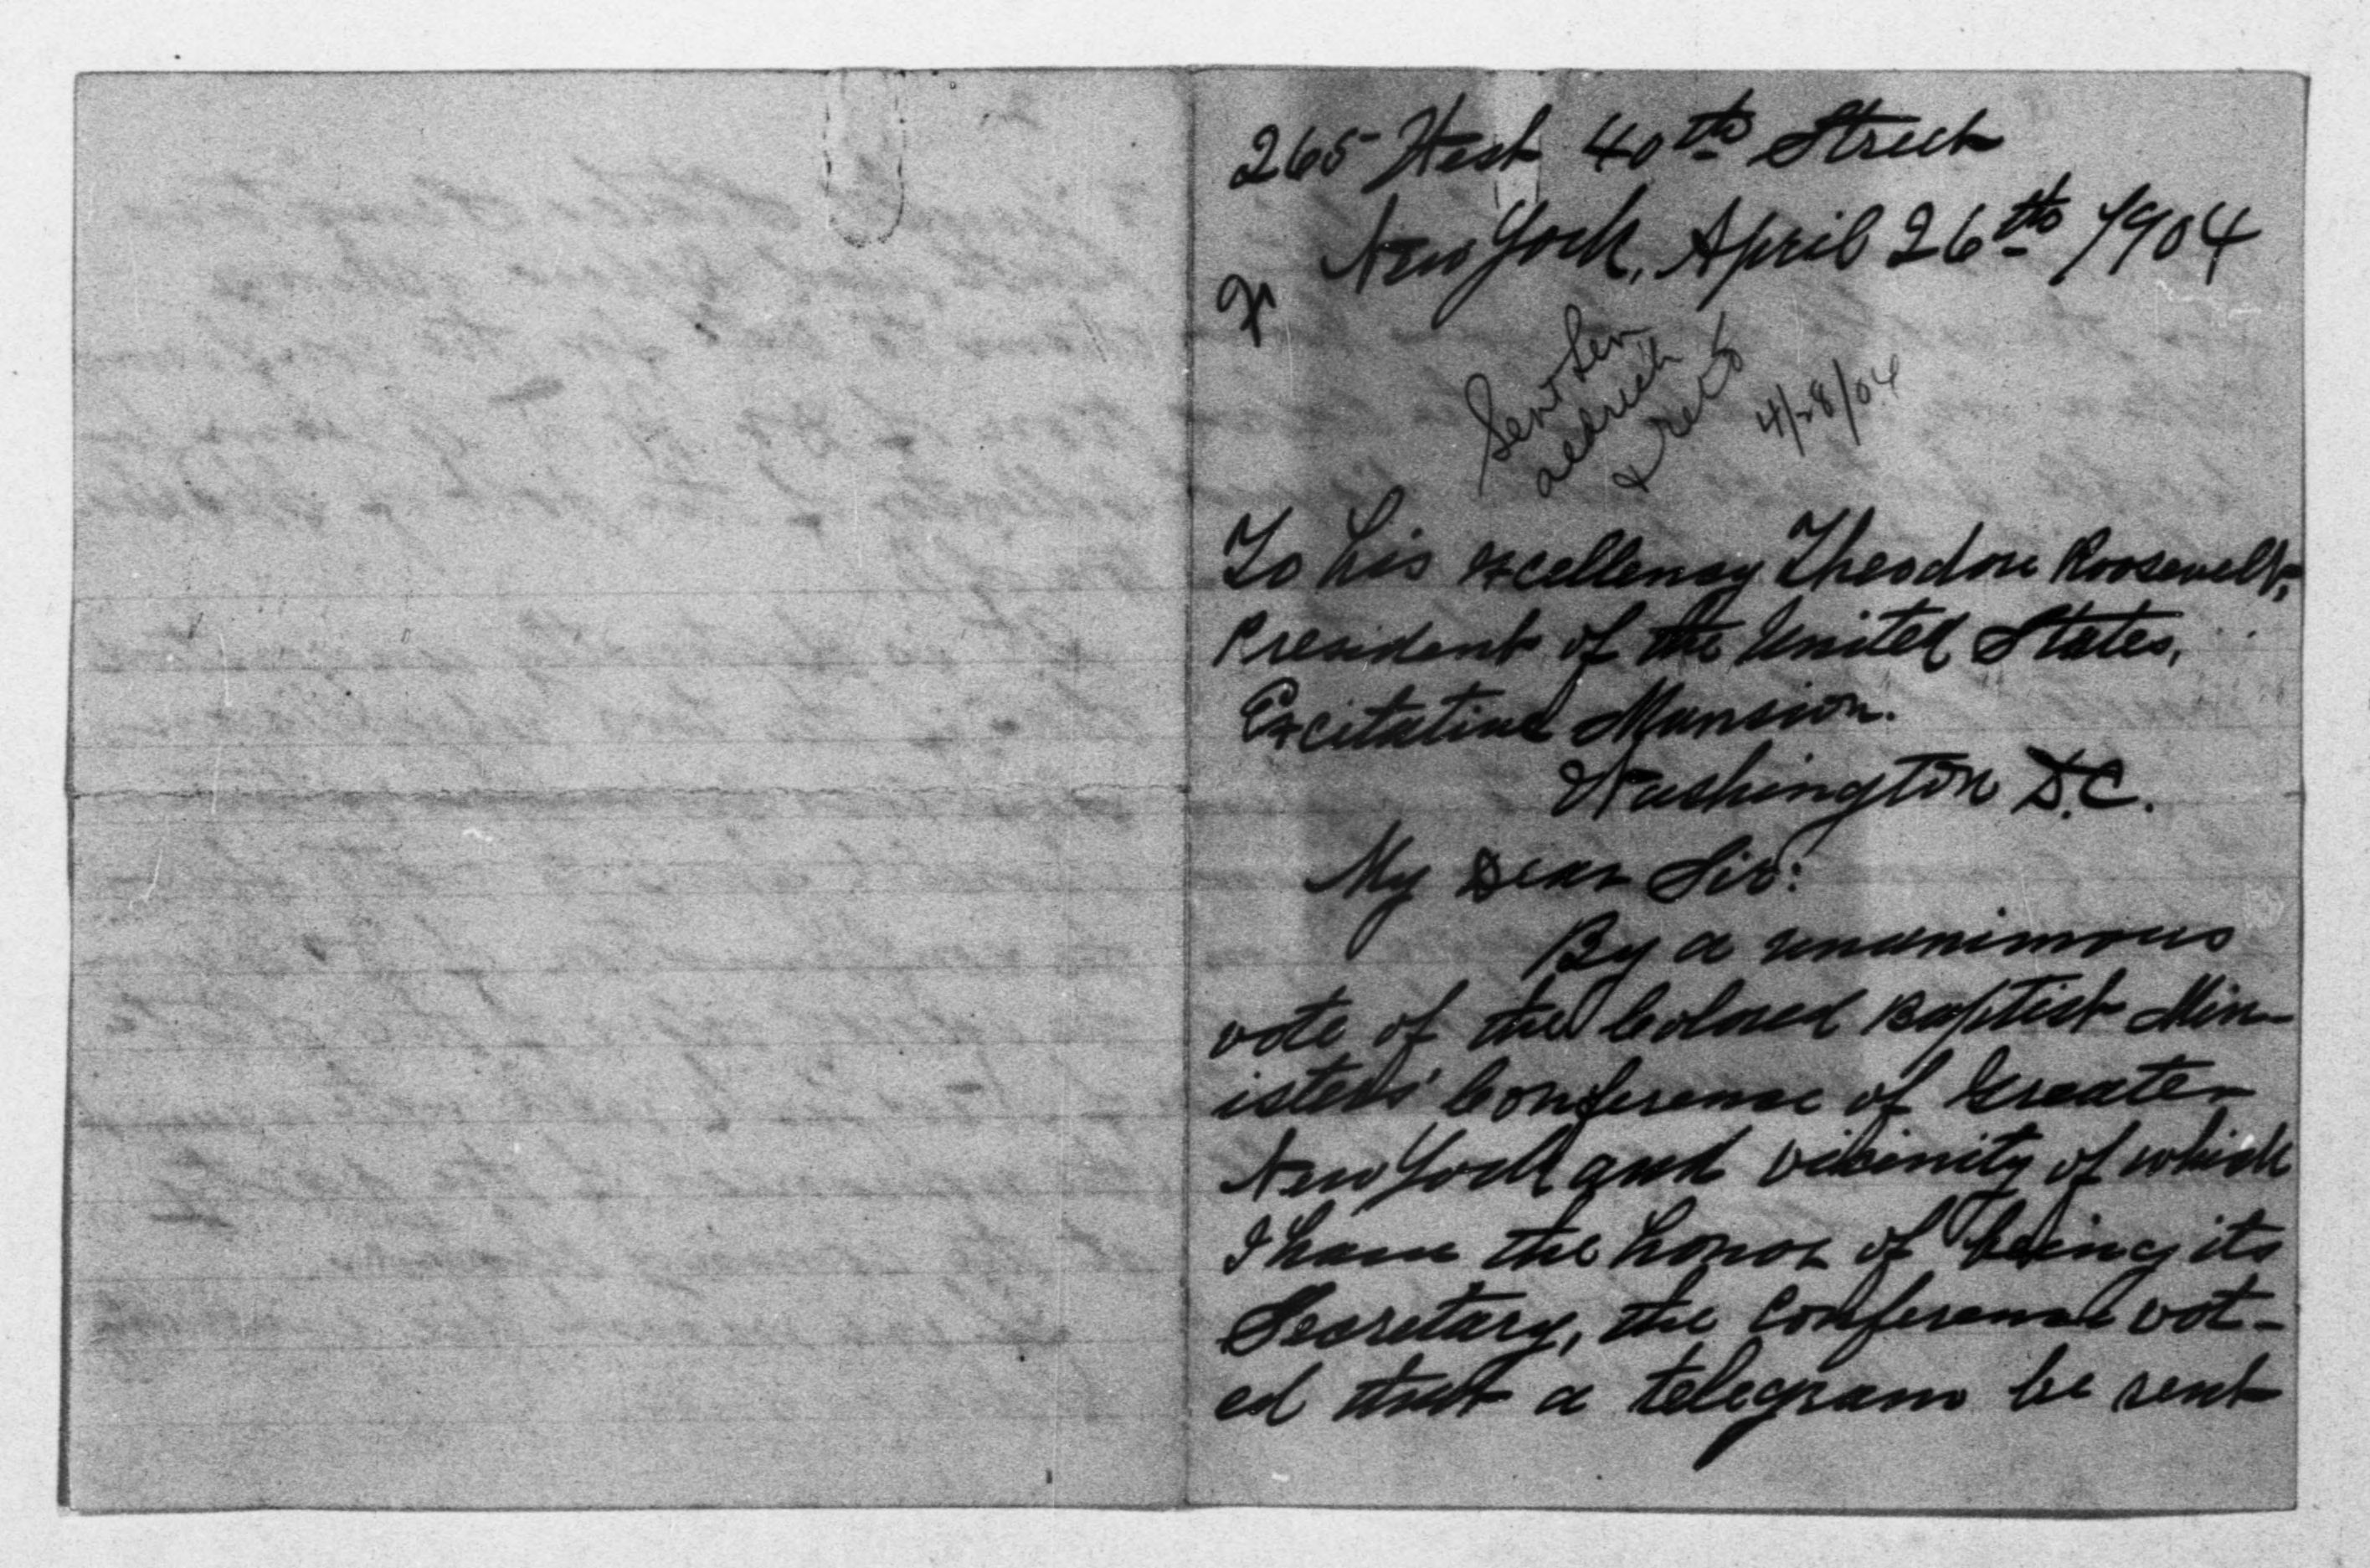 265 West 40th Street
New York, April 26th 1904
Sen
Aldrich
& ret'd
4/28/04
To his excellency Theodore Roosevelt,
President of the United States,
Excitative Mansion.
Washington D.C.
My Dear Sir:
By a unanimous
vote of the Colored Baptist Min-
isters' Conference of Greater
New York and vicinity of which
I have the honor of being its
Secretary, the Conference vot-
ed that a telegram be sent